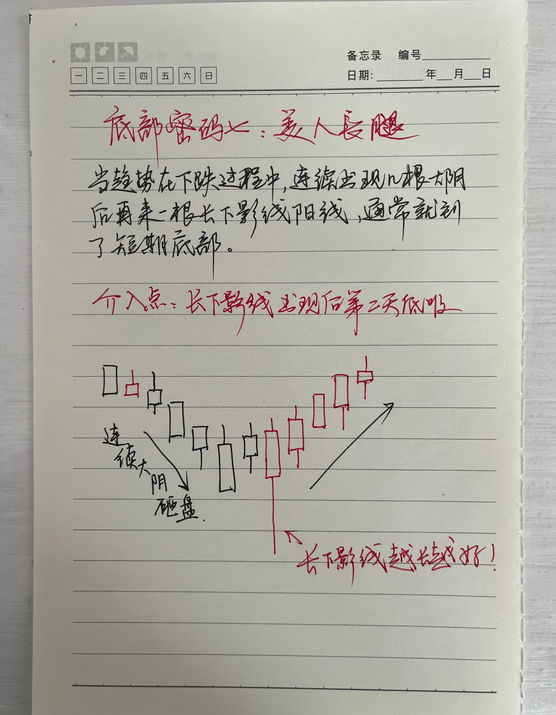 备忘录 编号
一 二 三 四 五 六 日
日期: 年 月 日
底部密码七：美人長腿
当趋势在下跌过程中，连续出现几根大阴
后再来一根长下影线阳线，通常就到
了短期底部。
介入点：长下影线出现后第二天低吸
连
续大
阴
砸盘
长下影线越长越好！